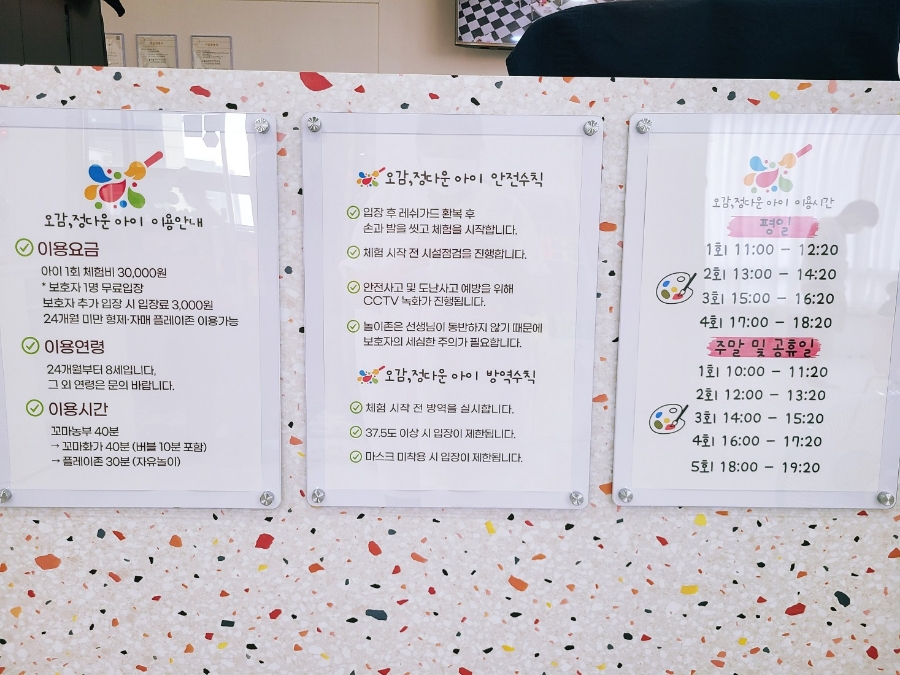 오감,정다운 아이 이용안내
이용요금
아이 1회 체험비 30,000원
* 보호자 1명 무료입장
보호자 추가 입장 시 입장료 3,000원
24개월 미만 형제·자매 플레이존 이용가능
이용연령
24개월부터 8세입니다.
그 외 연령은 문의 바랍니다.
이용시간
꼬마농부 40분
→ 꼬마화가 40분 (버블 10분 포함)
→ 플레이존 30분 (자유놀이)
오감,정다운 아이 안전수칙
입장 후 레쉬가드 환복 후
손과 발을 씻고 체험을 시작합니다.
체험 시작 전 시설점검을 진행합니다.
안전사고 및 도난사고 예방을 위해
CCTV 녹화가 진행됩니다.
놀이존은 선생님이 동반하지 않기 때문에
보호자의 세심한 주의가 필요합니다.
오감,정다운 아이 방역수칙
체험 시작 전 방역을 실시합니다.
37.5도 이상 시 입장이 제한됩니다.
마스크 미착용 시 입장이 제한됩니다.
오감,정다운 아이 이용시간
평일
1회 11:00 - 12:20
2회 13:00 - 14:20
3회 15:00 - 16:20
4회 17:00 - 18:20
주말 및 공휴일
1회 10:00 - 11:20
2회 12:00 - 13:20
3회 14:00 - 15:20
4회 16:00 - 17:20
5회 18:00 - 19:20